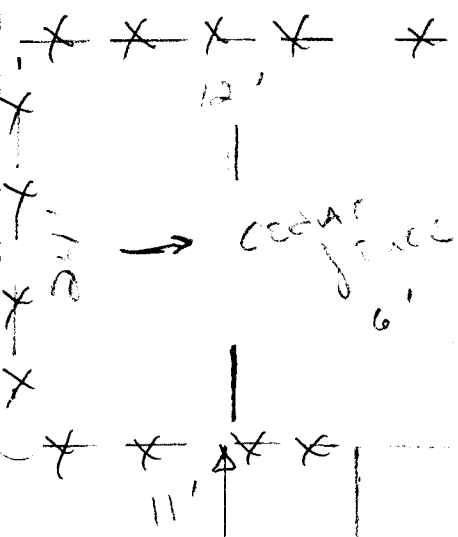 12'
cedar
fence
6'
11'